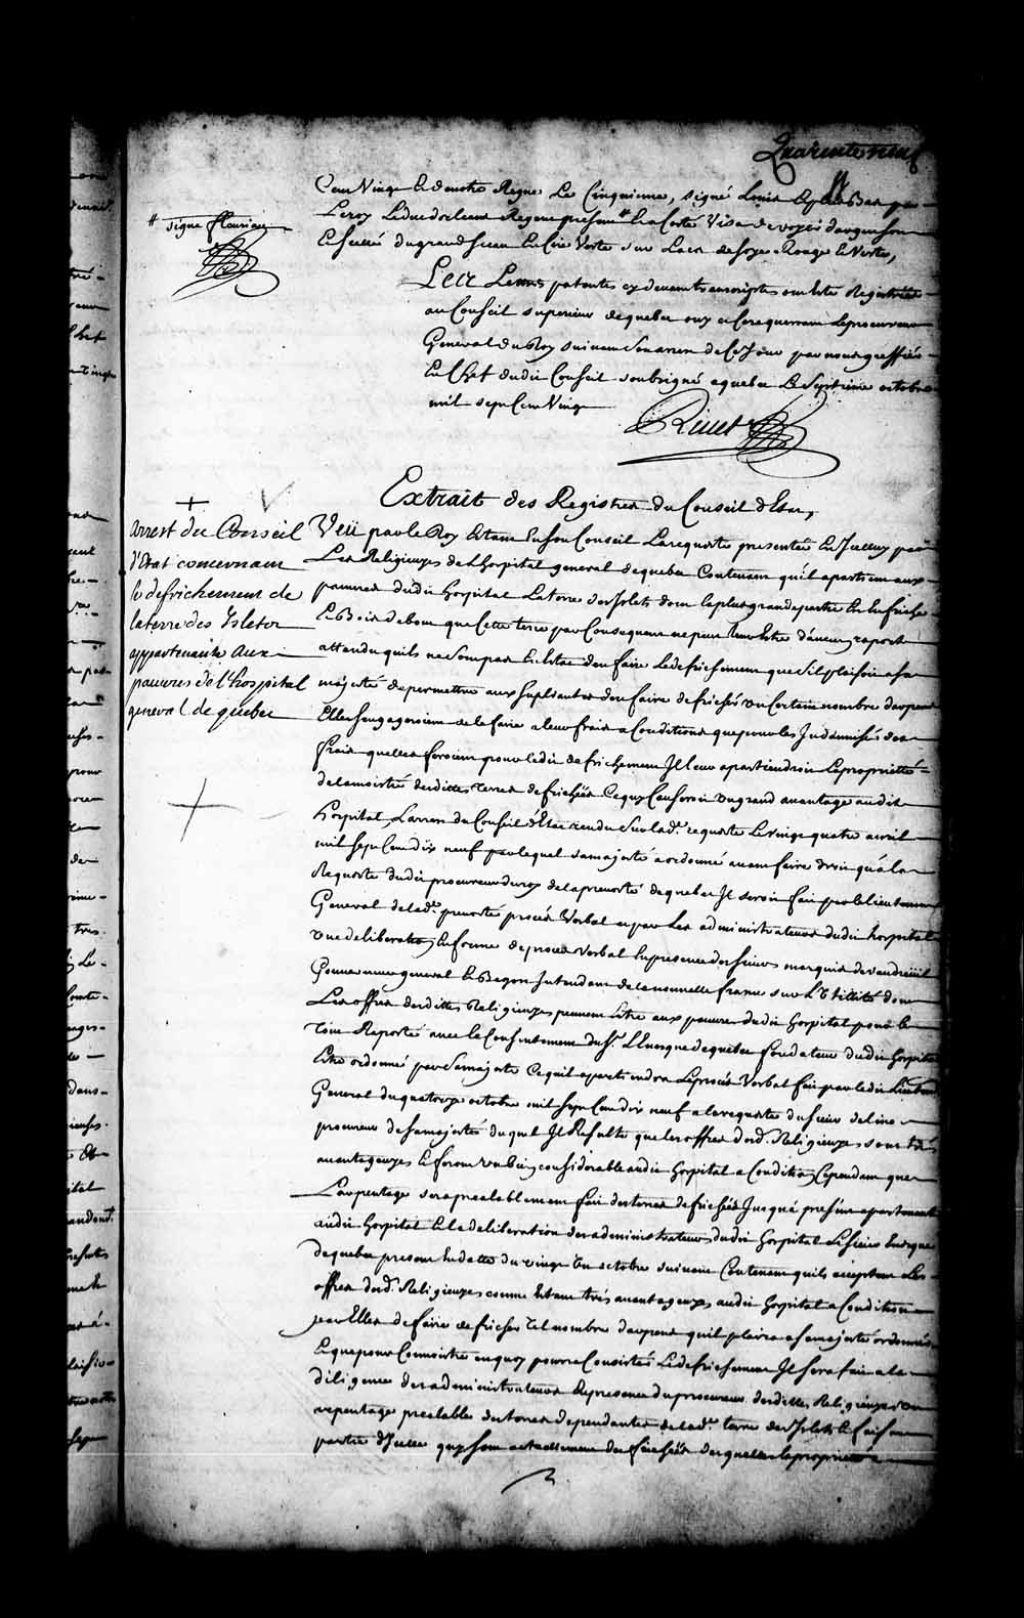 Quarente neuf
Cens Vingt et de nostre Regne Le Cinquieme, signé Louis et plus Bas par
Leroy Leduc dorleans Regent present et a Costé Visa de voyer dargenson
Et scellé du grand sceau En Cire Verte sur Lacs de soye Rouge et Verte,
# signe fleuriau
Les Lettres patentes cy devant transcriptes ont été Registrées
au Conseil superieur de quebec ouy et ce requerrant Le procureur
General du Roy suivant Son arrest de Ce Jour par nous greffier
En Chef dudit Conseil soubsigné a quebec Le Septieme octobre
mil sept Cens Vingt
Rivet
Extrait des Registres du Conseil d'Etat,
+
arrest du Conseil
d'Etat concernant
le defrichement de
la terre des Isletes
appartenante aux
pauvres de l'hospital
general de quebec
Veu par le Roy Estant En son Conseil La requeste presentée En Iceluy par
Les Religieuses de L'hospital general de quebec Contenant quil apartient aux
pauvres dudit hospital La terre des Islets dont la plus grande partie Est En friche
Et Bois debout que Cette terre par Consequent ne peut leur Estre d'aucun raport
attendu quils ne Sont pas En Estat d'en faire Le defrichement que s'il plaisoit a sa
majesté de permettre aux Supliantes d'en faire defricher un Certain nombre darpens
Elles Sengageroient de le faire a leurs frais a Conditions que pour les Indemniser des
frais quelles feroient pour ledit defrichement Il leur apartiendroit La proprieté
de la moitié desdittes terres defrichées Ce qui Causeroit un grand avantage audit
hospital, Larrest du Conseil d'Etat rendu Sur lad. requeste Le vingt quatre avril
mil Sept Cens dix neuf par lequel sa majesté a ordonné avant faire droit qu'a la
Requeste dudit procureur du roy de la prevosté de quebec Il seroit fait par le lieutenant
General de lad. prevosté procés Verbal et par Les administrateurs dudit hospital
une deliberation En forme de procés Verbal En presence des sieurs marquis de vaudreüil
Gouverneur general Et Begon Intendant de la nouvelle france sur L'Utillité dont
Les offres desdittes Religieuses peuvent Estre aux pauvres dudit hospital pour le
tout Raporté avec le Consentement du Sr. L'Evesque de quebec fondateur dudit hospital
Estre ordonné par Sa majesté Ce quil apartiendra Le procés Verbal fait par ledit Lieutenant
General du quatorze octobre mil Sept Cens dix neuf a la requeste du sieur
procureur de Sa majesté duquel Il Resulte que les offres desd. Religieuses sont trés
avantageuzes Et feront un Bien considerable audit hospital a Condition Cependant que
Larpentage sera prealablement fait des terres defrichées Jusqu'a present apartenantes
audit hospital Et la deliberation des administrateurs dudit hospital Le sieur Evesque
de quebec present En datte du vingt En octobre suivant Contenant quils acceptent Les
offres desd. Religieuzes comme Estant trés avantageuzes audit hospital a Condition
par Elles de faire defricher tel nombre darpens quil plaira a sa majesté ordonner
Et que pour Connoistre en quoy pourra Consister Le defrichement Il sera fait a la
diligence des administrateurs En presence du procureur desdittes Religieuzes un
arpentage prealable des terres dependantes de lad. terre des Islets Et faisant
partie d'Icelle qui sont actuellement defrichées desquelles la proprieté